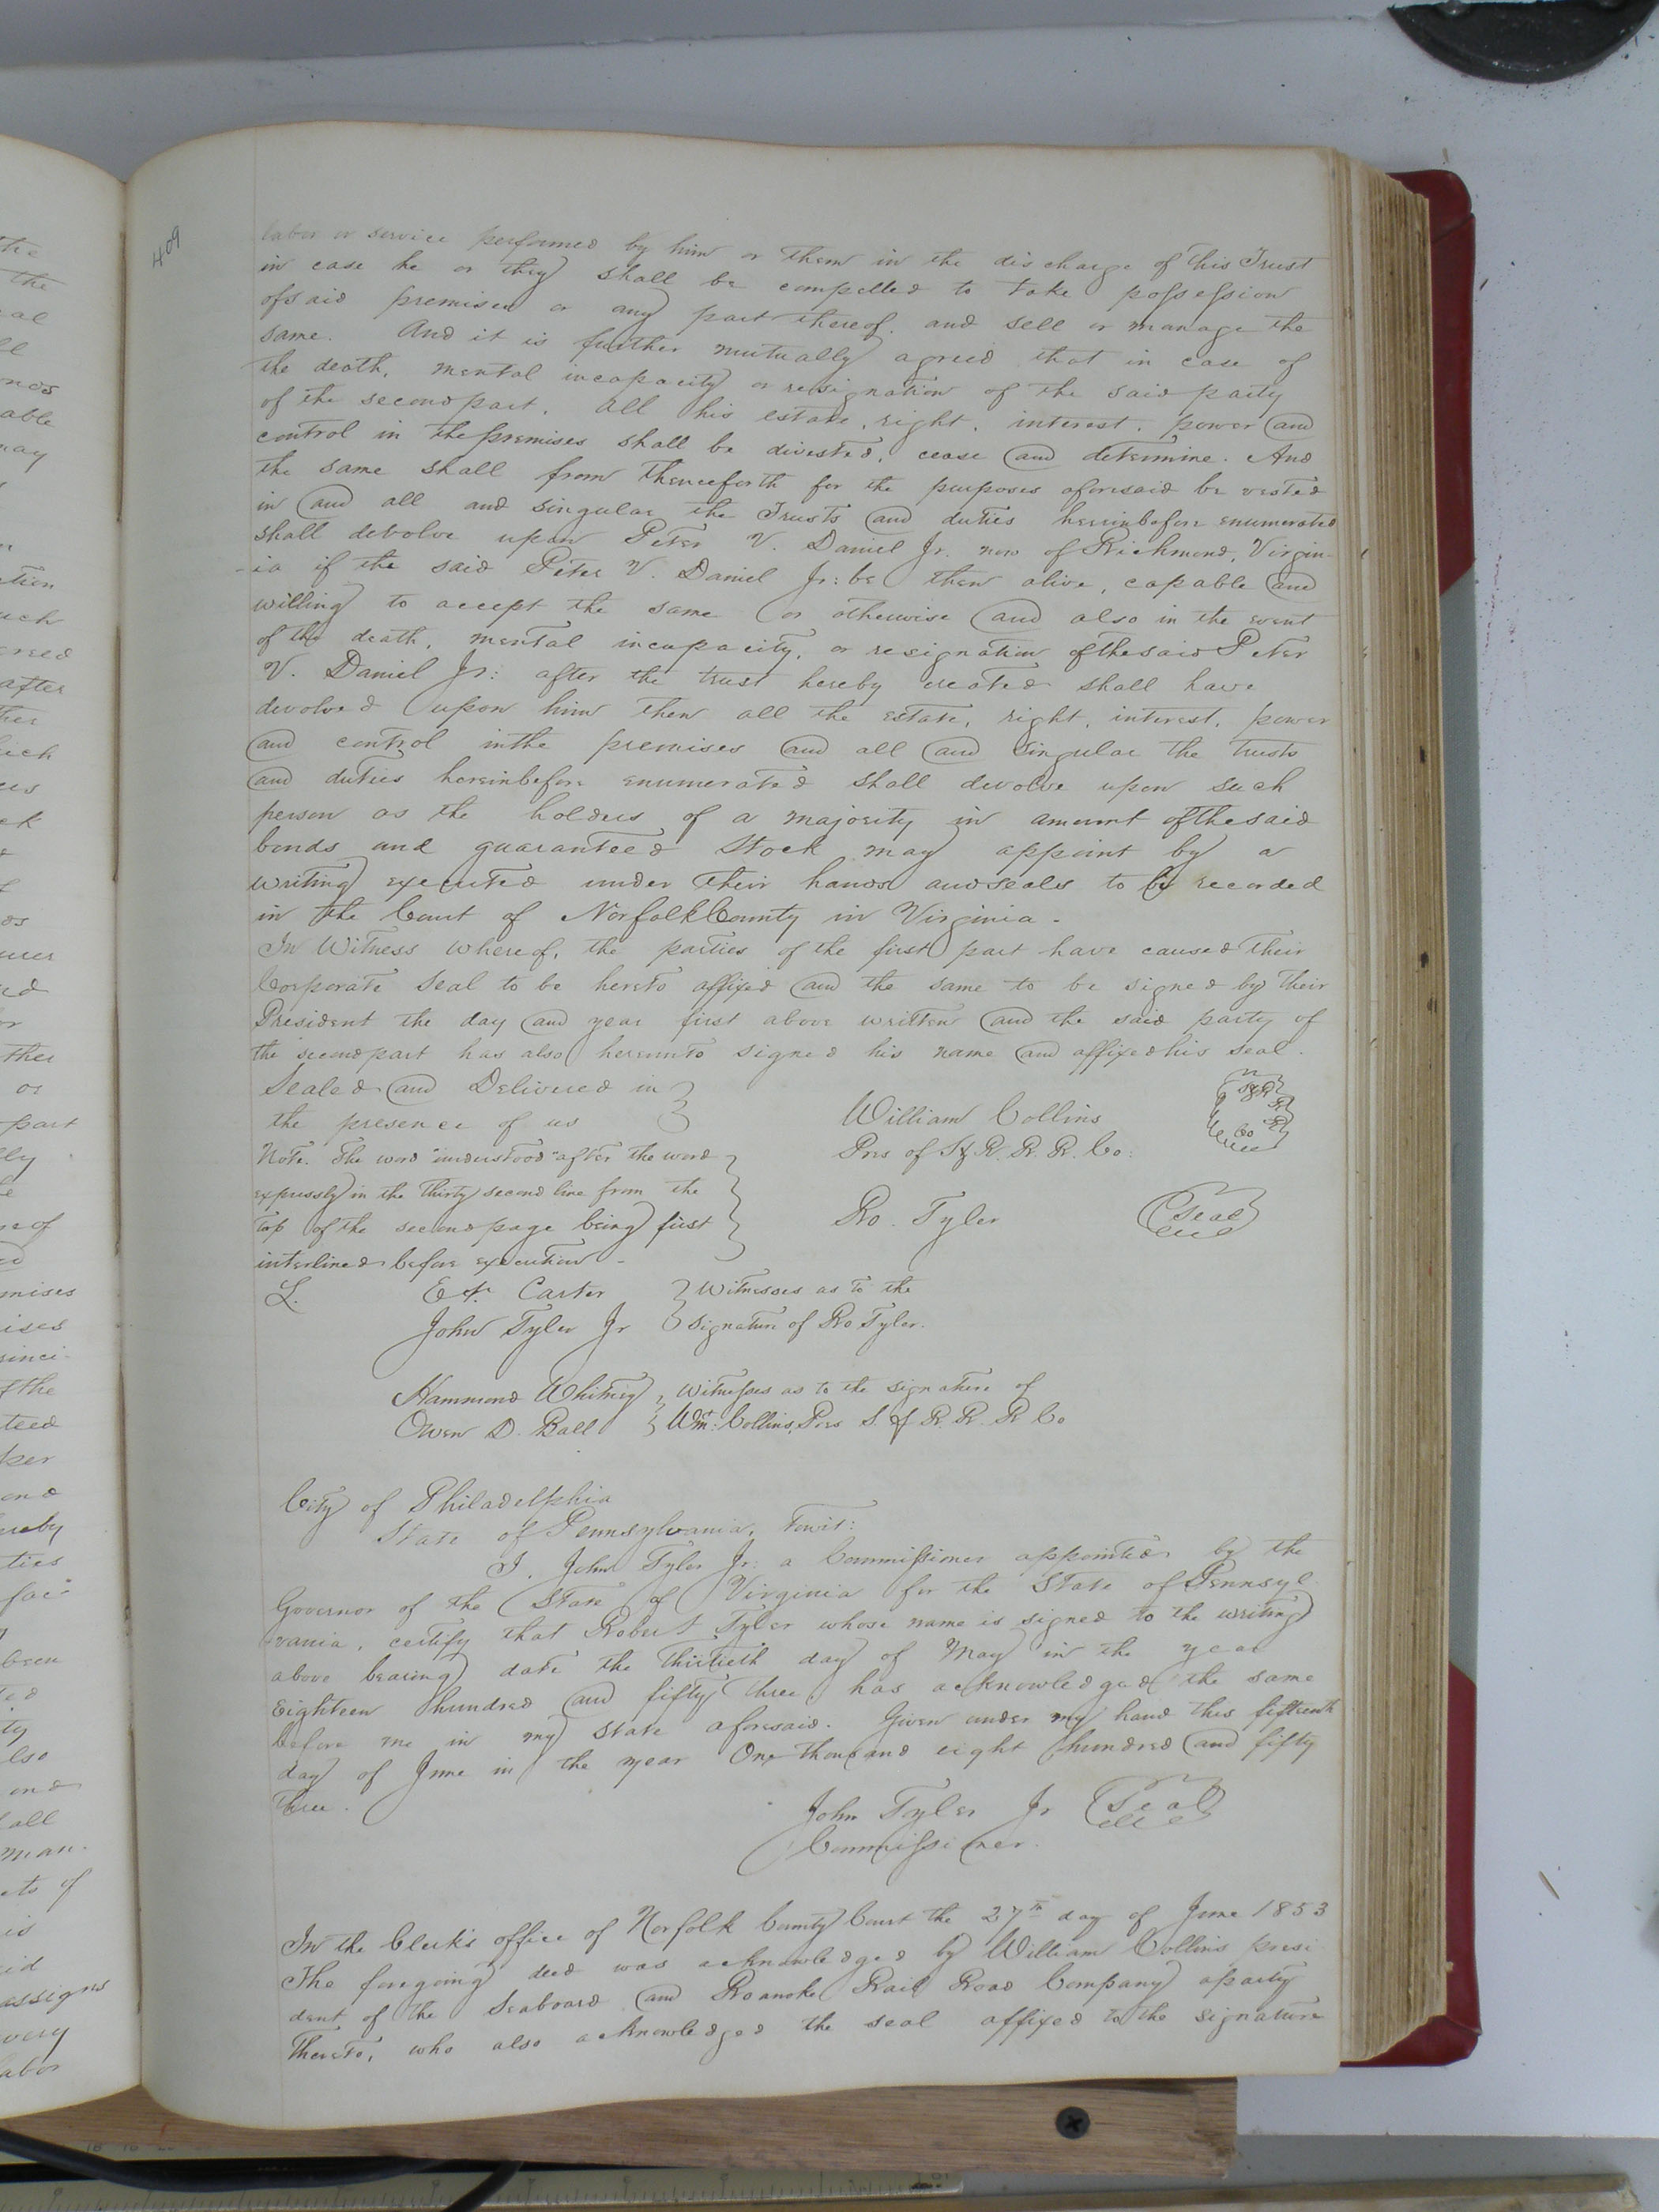 409
labor or service performed by him or them in the discharge of this Trust
in case he or they shall be compelled to take possession
of said premises or any part thereof. and sell or manage the
same. And it is further mutually agreed that in case of
the death, mental incapacity or resignation of the said party
of the second part. all his estate, right, interest, power and
control in the premises shall be divested, cease and determine. And
the same shall from thenceforth for the purposes aforesaid be vested
in and all and singular the Trusts and duties hereinbefore enumerated
shall devolve upon Peter V. Daniel Jr. now of Richmond, Virgin-
-ia if the said Peter V. Daniel Jr: be then alive, capable and
willing to accept the same or otherwise and also in the event
of the death, mental incapacity, or resignation of the said Peter
V. Daniel Jr: after the trust hereby created shall have
devolved upon him then all the estate, right, interest, power
and control in the premises and all and singular the trusts
and duties hereinbefore enumerated shall devolve upon such
person as the holders of a majority in amount of the said
bonds and guaranteed Stock may appoint by a
writing executed under their hands and seals to be recorded
in the Court of Norfolk County in Virginia -
In Witness whereof, the parties of the first part have caused their
Corporate Seal to be hereto affixed and the same to be signed by their
President the day and year first above written and the said party of
the second part has also hereunto signed his name and affixed his seal.
Sealed and Delivered in
the presence of us
William Collins
Pres of S & R. R. R. Co:
Note. The word "understood" after the word
expressly in the thirty second line from the
top of the second page being first
interlined before execution -
Ro. Tyler Seal
L. Carter Witnesses as to the
John Tyler Jr Signature of Ro Tyler.
Hammond Whitney Witnesses as to the signature of
Owen D. Ball Wm: Collins, Pres S. & R. R. R Co
City of Philadelphia
State of Pennsylvania, Towit:
I, John Tyler Jr: a Commissioner appointed by the
Governor of the State of Virginia for the State of Pennsyl
vania, certify that Robert Tyler whose name is signed to the writing
above bearing date the thirtieth day of May in the year
Eighteen hundred and fifty three has acknowledged the same
before me in my State aforesaid. Given under my hand this fifteenth
day of June in the year One thousand eight hundred and fifty
three.
John Tyler Jr Seal
Commissioner.
In the Clerk's office of Norfolk County Court the 27th day of June 1853
The foregoing deed was acknowledged by William Collins presi
dent of the Seaboard and Roanoke Rail Road Company a party
thereto, who also acknowledged the seal affixed to the signature